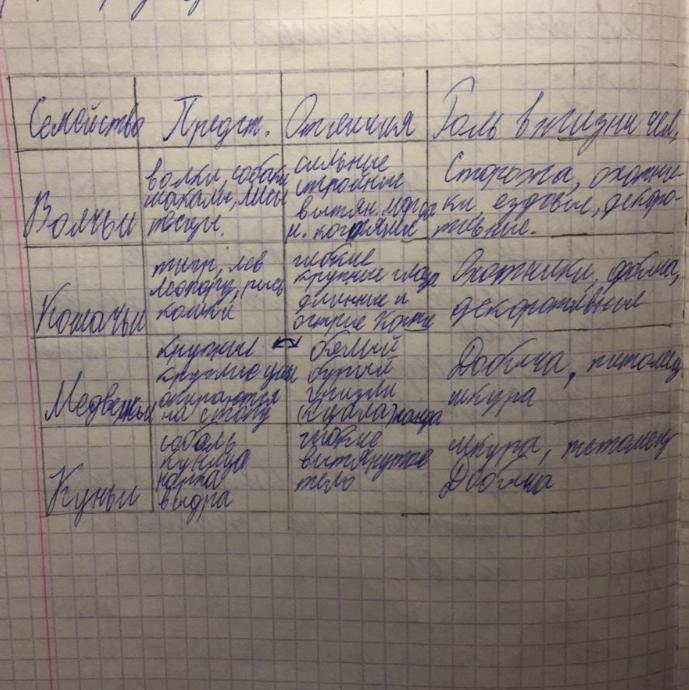 Семейство Предст. Отличия Роль в жизни чел.
Волчьи
волки, собаки
шакалы, лисы
песцы.
сильные
стройные
вытян. морда
с когтями
Сторожа, охотни-
ки, ездовые, декора-
тивные.
Кошачьи
тигр, лев
леопард, рысь
кошки
гибкие
крупные глаза
длинные и
острые когти
Охотники,
декоративные
Медвежьи
крупные
круглые уши
опираются
на стопу
белый
бурый
гризли
коала, панда
Добыча, питомец,
шкура
Куньи
соболь
куница
норка
выдра
гибкие
вытянутое
тело
шкура, питомец
Добыча